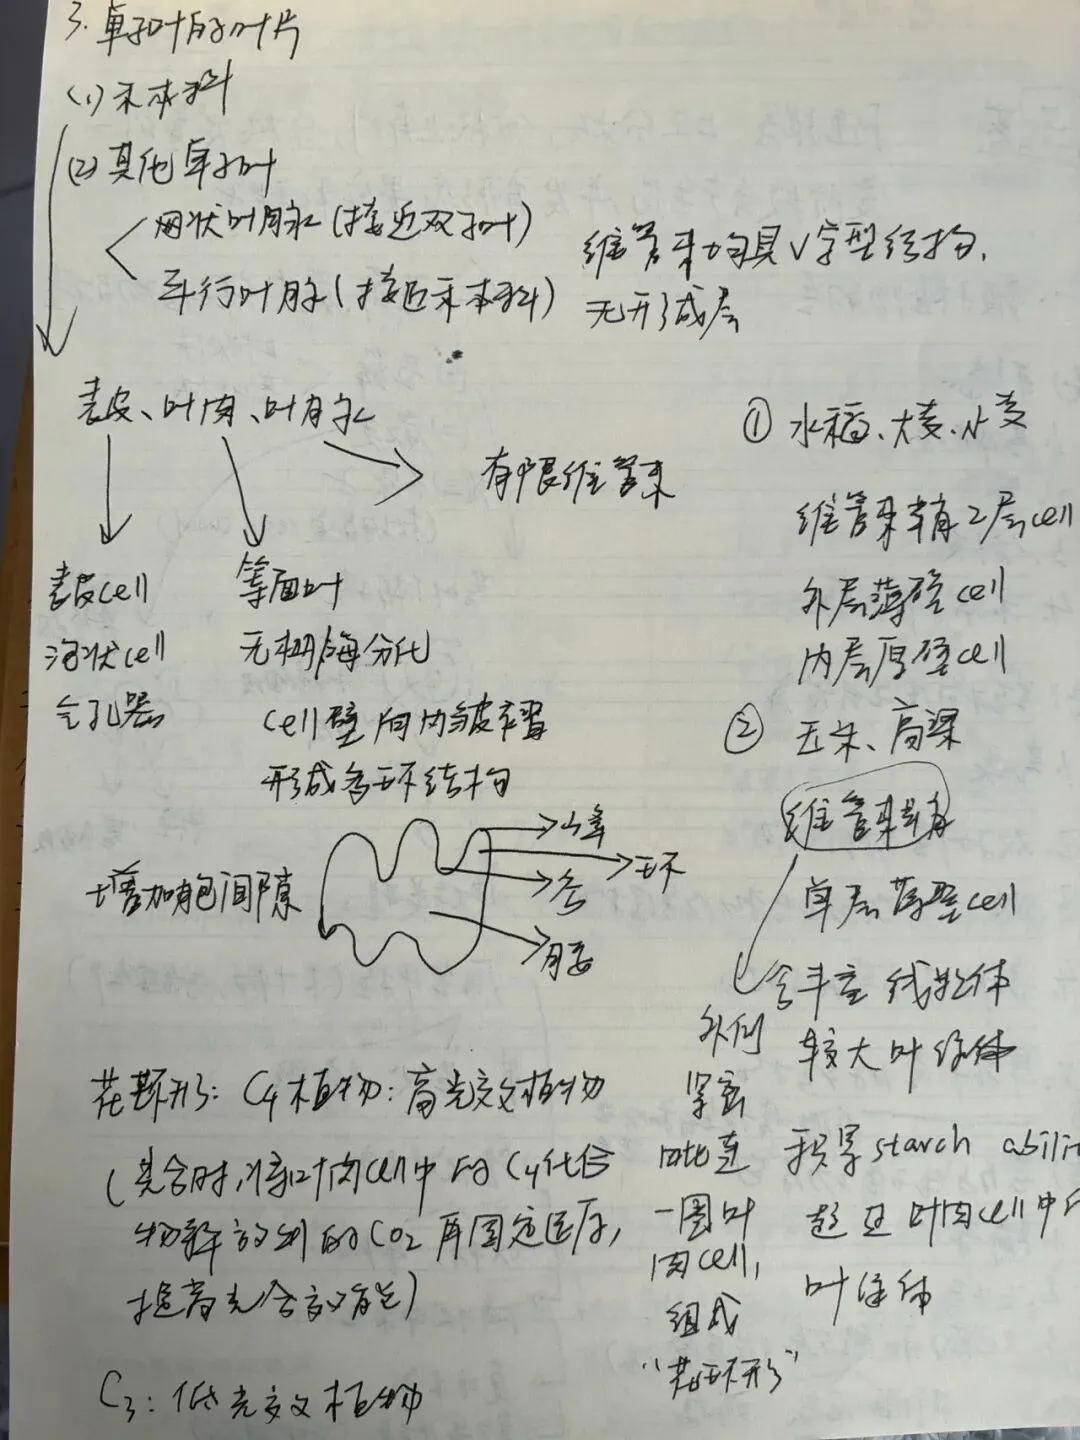 3. 单子叶的叶片
(1) 禾本科
(2) 其他单子叶
网状叶脉(接近双子叶)
平行叶脉(接近禾本科)
维管束均具V字型结构,
无形成层
表皮、叶肉、叶脉
有限维管束
表皮cell
泡状cell
气孔器
等面叶
无栅海分化
cell壁向内皱褶
形成多环结构
增加胞间隙
山峰
环
谷
腰
① 水稻、大麦、小麦
维管束鞘2层cell
外层薄壁cell
内层厚壁cell
② 玉米、高粱
维管束鞘
单层薄壁cell
含丰富线粒体
较大叶绿体
积累starch
超过叶肉cell中
叶绿体
外侧
紧密
毗连
一圈叶
肉cell,
组成
“花环形”
花环形: C4植物: 高光效植物
(光合时,将叶肉cell中的C4化合
物释放到的CO2再固定还原,
提高光合效能)
C3: 低光效植物